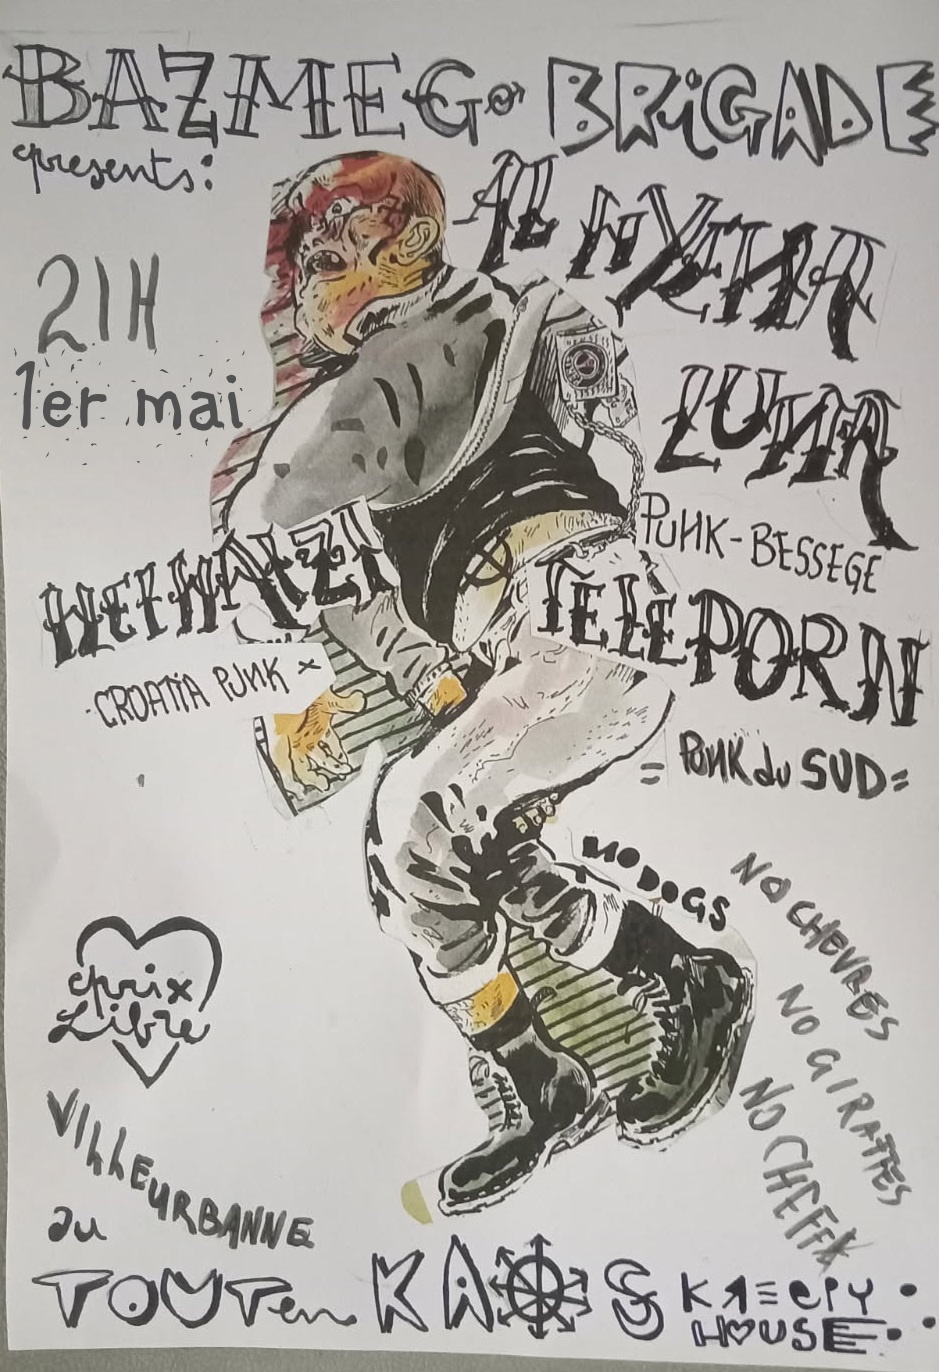 BAZMEG BRiGADE
presents:
21H
1er mai
AL HYENA
LUNA
PUNK-BESSEGE
NEINNAIZI
CROATIA PUNK
TELEPORN
= PUNK du SUD =
NO DOGS
NO CHEVRES
NO GIRAFFES
NO CHEFFX
prix
Libre
VILLEURBANNE
au
TOUT en KAOS KREEPY
HOUSE